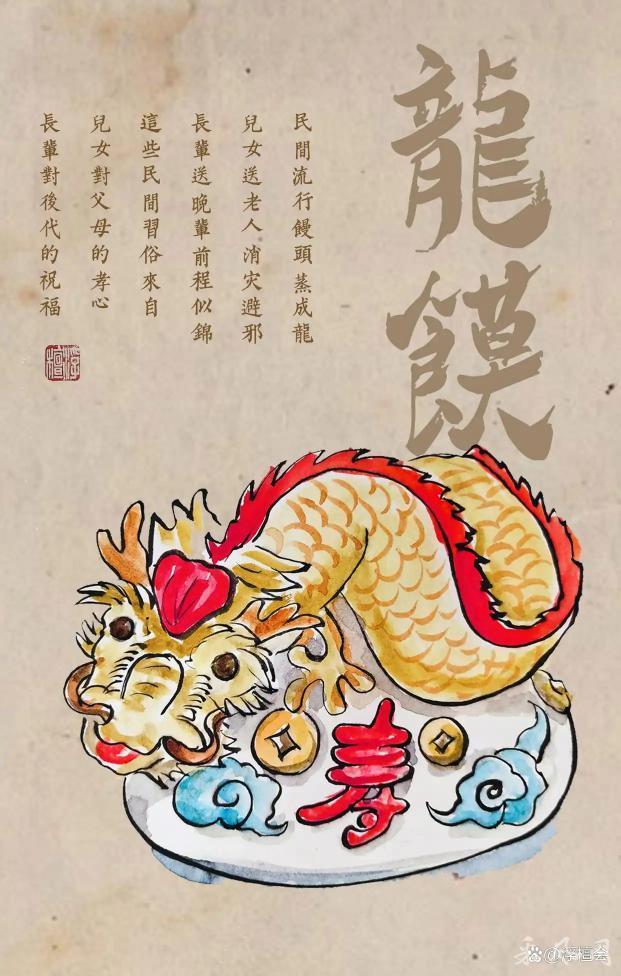 龍饃
民間流行饅頭蒸成龍
兒女送老人消灾避邪
長輩送晚輩前程似錦
這些民間習俗來自
兒女對父母的孝心
長輩對後代的祝福
寿